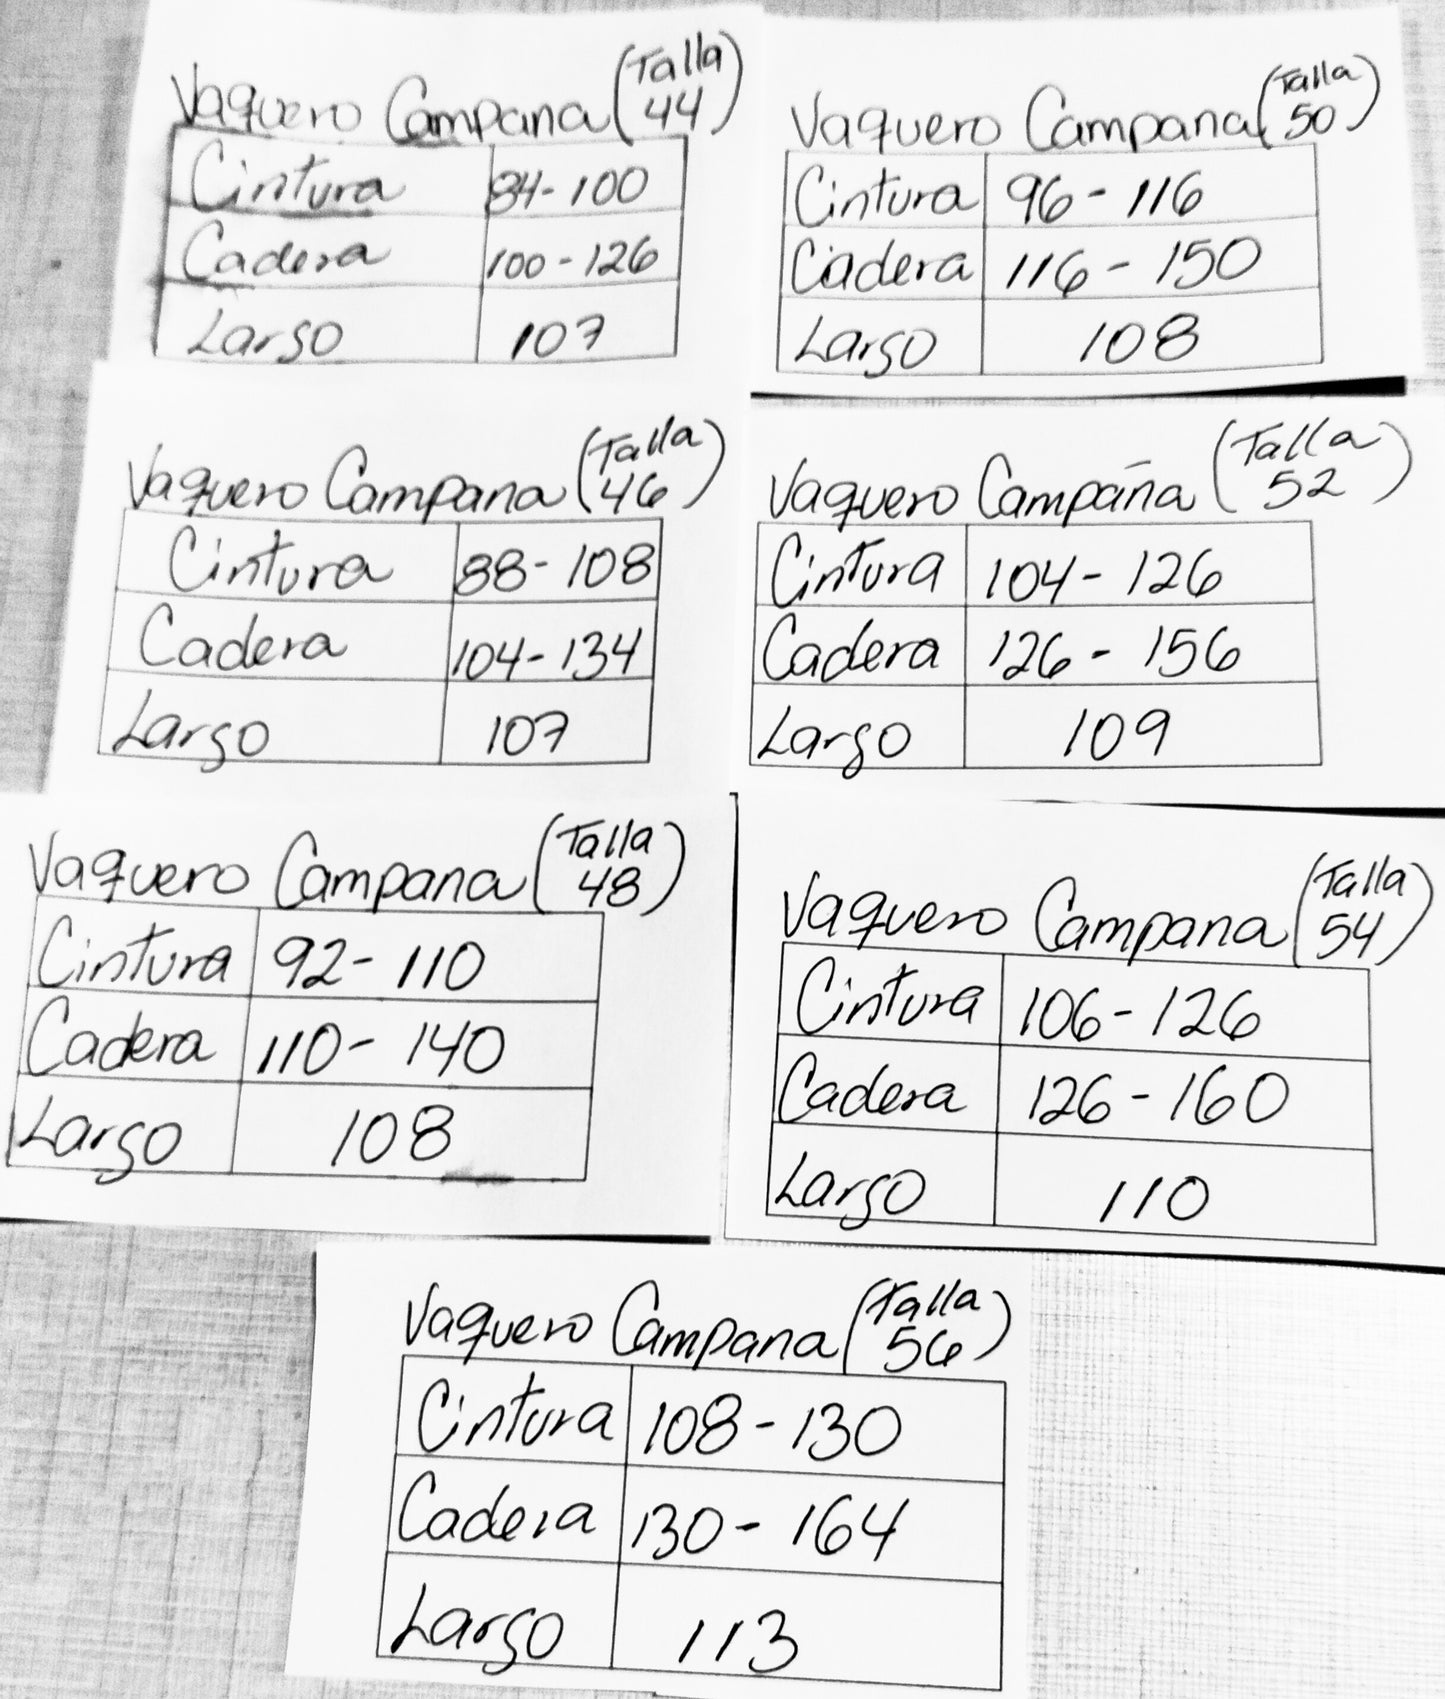 Vaquero Campana (Talla 44)
Cintura 84-100
Cadera 100-126
Largo 107
Vaquero Campana (Talla 50)
Cintura 96-116
Cadera 116-150
Largo 108
Vaquero Campana (Talla 46)
Cintura 88-108
Cadera 104-134
Largo 107
Vaquero Campana (Talla 52)
Cintura 104-126
Cadera 126-156
Largo 109
Vaquero Campana (Talla 48)
Cintura 92-110
Cadera 110-140
Largo 108
Vaquero Campana (Talla 54)
Cintura 106-126
Cadera 126-160
Largo 110
Vaquero Campana (Talla 56)
Cintura 108-130
Cadera 130-164
Largo 113